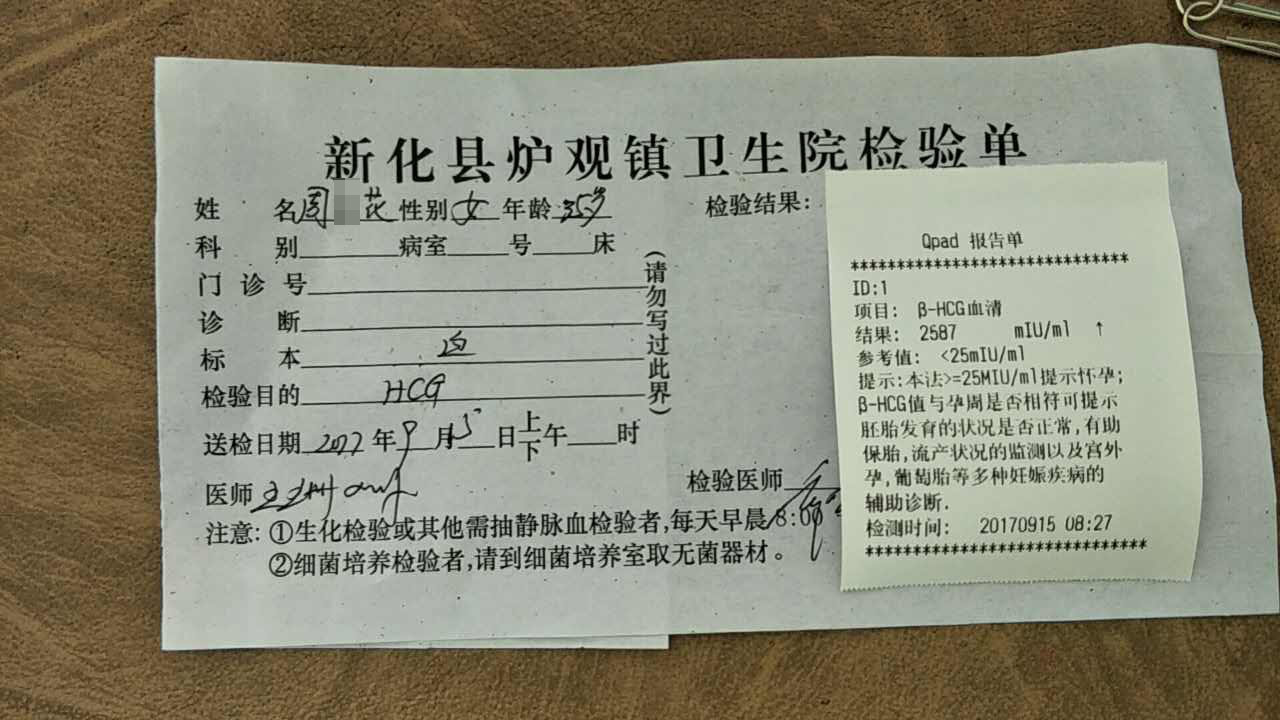 新化县炉观镇卫生院检验单
姓 名周 花 性别女 年龄35岁
科 别 病室 号 床
门 诊 号
诊 断
标 本
检验目的 HCG
送检日期 年9月15日 上下午 时
医师
(请勿写过此界)
检验结果:
检验医师
注意: ①生化检验或其他需抽静脉血检验者,每天早晨8:00
②细菌培养检验者,请到细菌培养室取无菌器材。
Qpad 报告单
******************************
ID:1
项目: β-HCG血清
结果: 2587 mIU/ml ↑
参考值: <25mIU/ml
提示:本法>=25MIU/ml提示怀孕;
β-HCG值与孕周是否相符可提示
胚胎发育的状况是否正常,有助
保胎,流产状况的监测以及宫外
孕,葡萄胎等多种妊娠疾病的
辅助诊断.
检测时间: 20170915 08:27
******************************